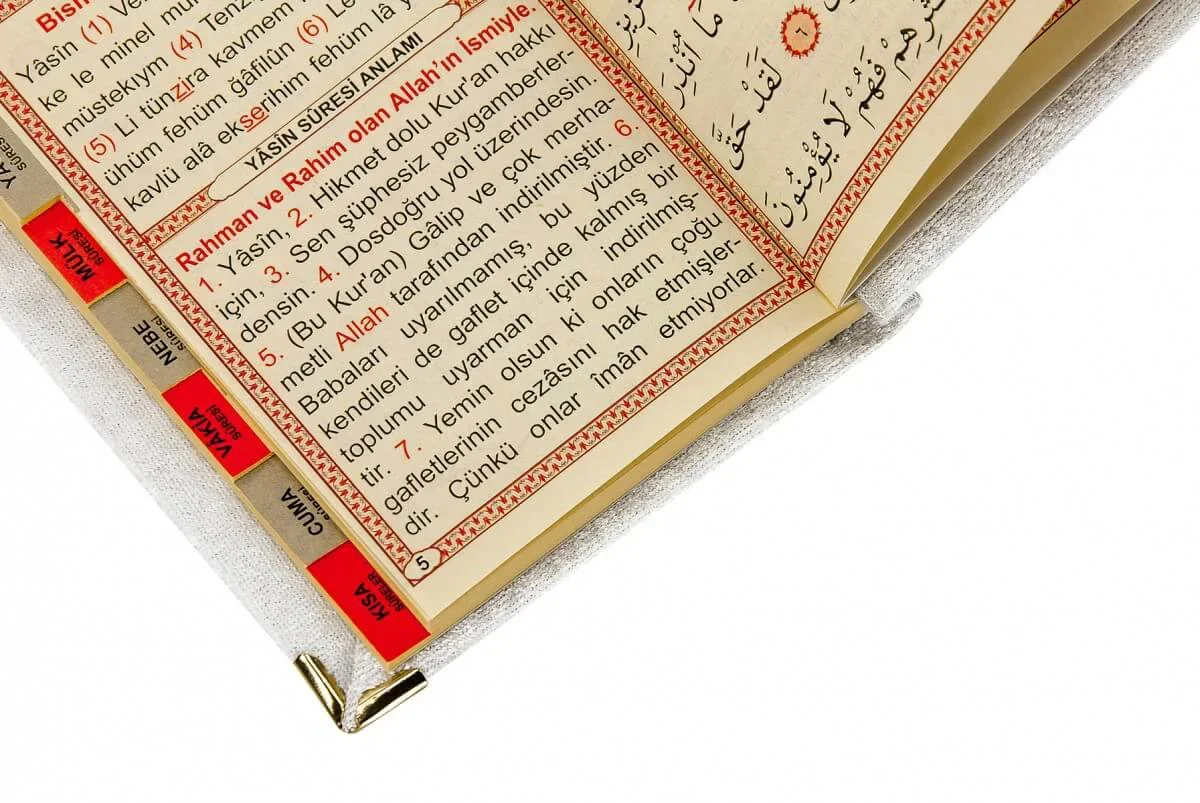 Yâsîn (1)
ke le minel
müstekıym (4) Tenz
(5) Li tünzira kavmem
ühüm fehüm ğâfilûn (6) Le
kavlü alâ ekserihim fehüm lâ
YÂSÎN SÛRESİ ANLAMI
Rahman ve Rahim olan Allah'ın İsmiyle.
1. Yâsin, 2. Hikmet dolu Kur'an hakkı
için, 3. Sen şüphesiz peygamberler-
densin. 4. Dosdoğru yol üzerindesin.
5. (Bu Kur'an) Gâlip ve çok merha-
metli Allah tarafından indirilmiştir. 6.
Babaları uyarılmamış, bu yüzden
kendileri de gaflet içinde kalmış bir
toplumu uyarman için indirilmiş-
tir. 7. Yemin olsun ki onların çoğu
gafletlerinin cezâsını hak etmişler-
dir. Çünkü onlar îmân etmiyorlar.
5
مَا أُنْذِرَ
٦
لَقَدْ حَقَّ
فَهُمْ لَا يُؤْمِنُونَ
SÛRESİ
MÜLK
SÛRESİ
NEBE
SÛRESİ
VÂKIA
SÛRESİ
CUMA
KISA
SÛRELER